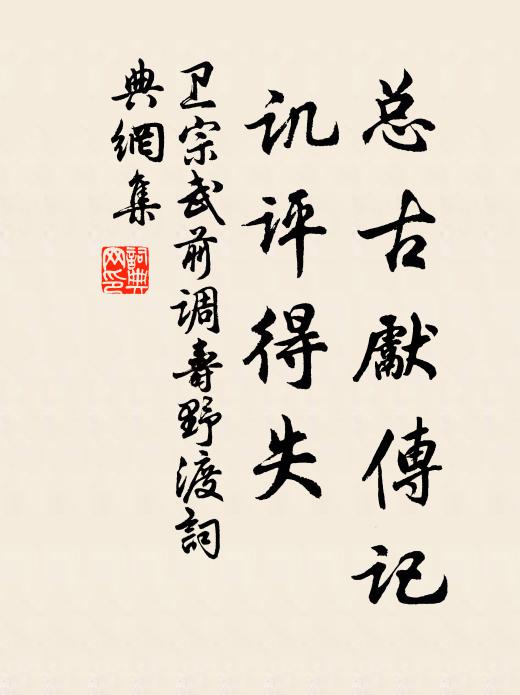 总古獻傳记
讥评得失
卫宗武前调壽野渡詞
典網集
詞典
网印